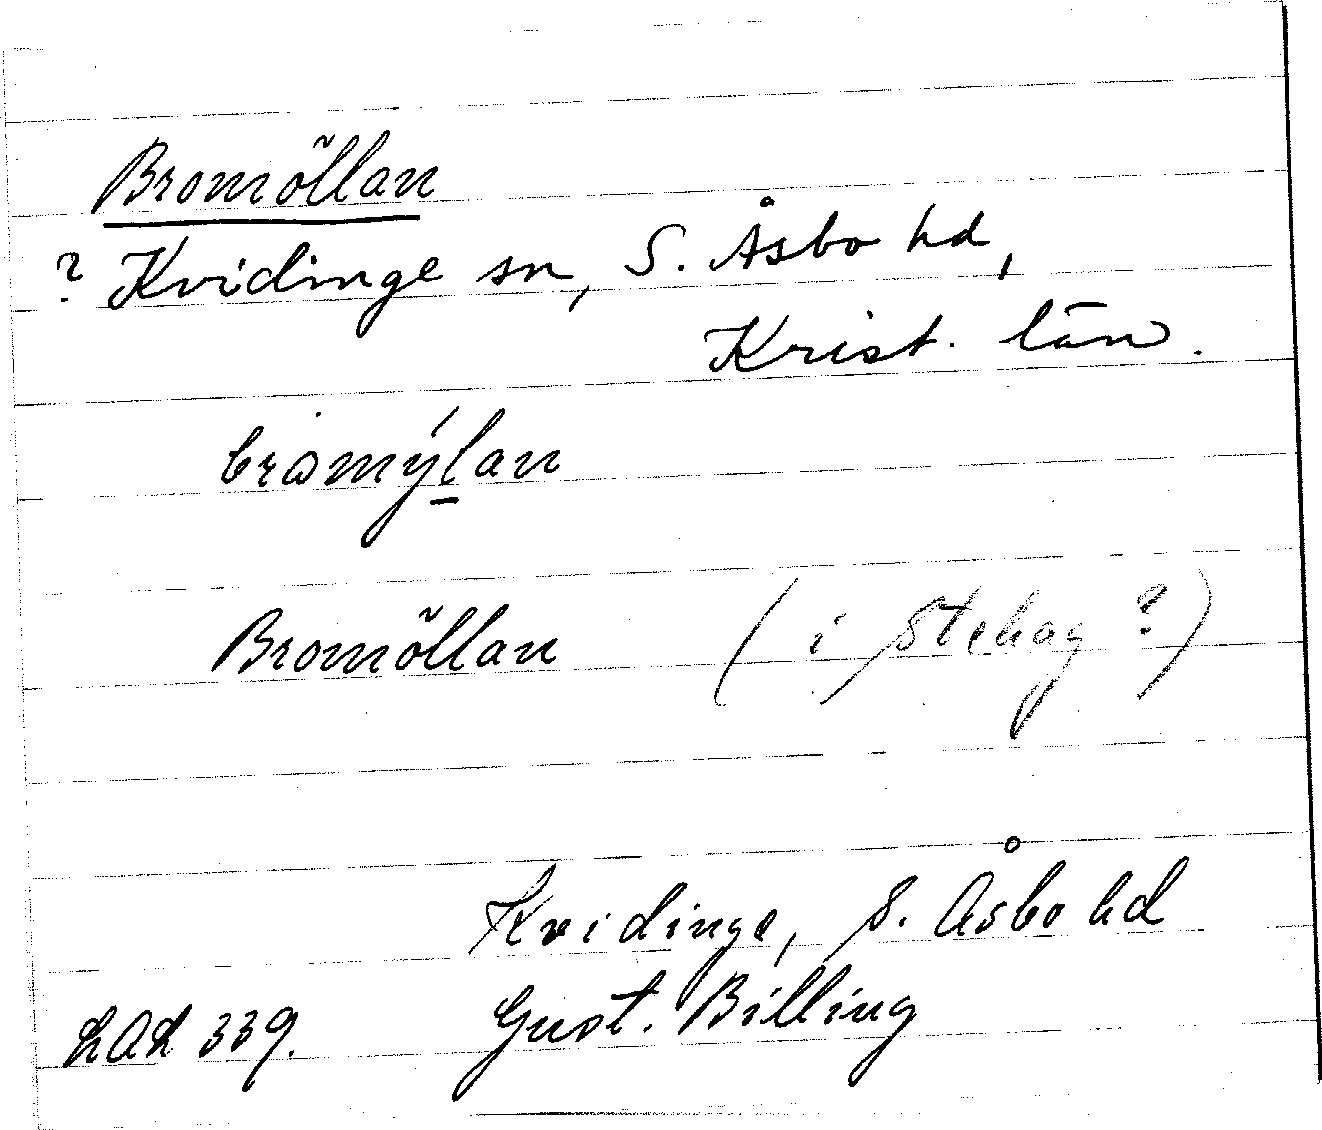 Bromöllan
? Kvidinge sn, S. Åsbo hd,
Krist. län.
bromýlan
Bromöllan (i Stehag ?)
Kvidinge, S. Åsbo hd
LAL 339. Gust. Billing